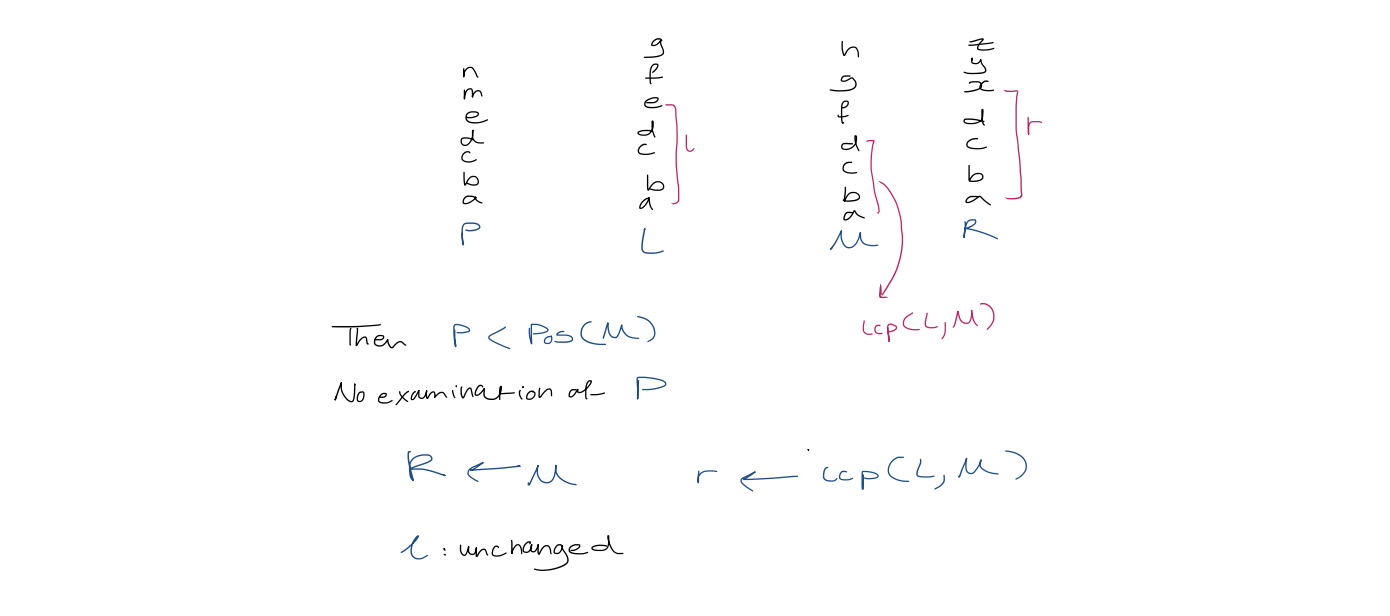 g h z
n f g y
m e f x
e d d d r
d c l c c
c b b b
b a a a
a
P L M R
lcp(L,M)
Then P < Pos(M)
No examination of P
R ← M r ← lcp(L,M)
l : unchanged